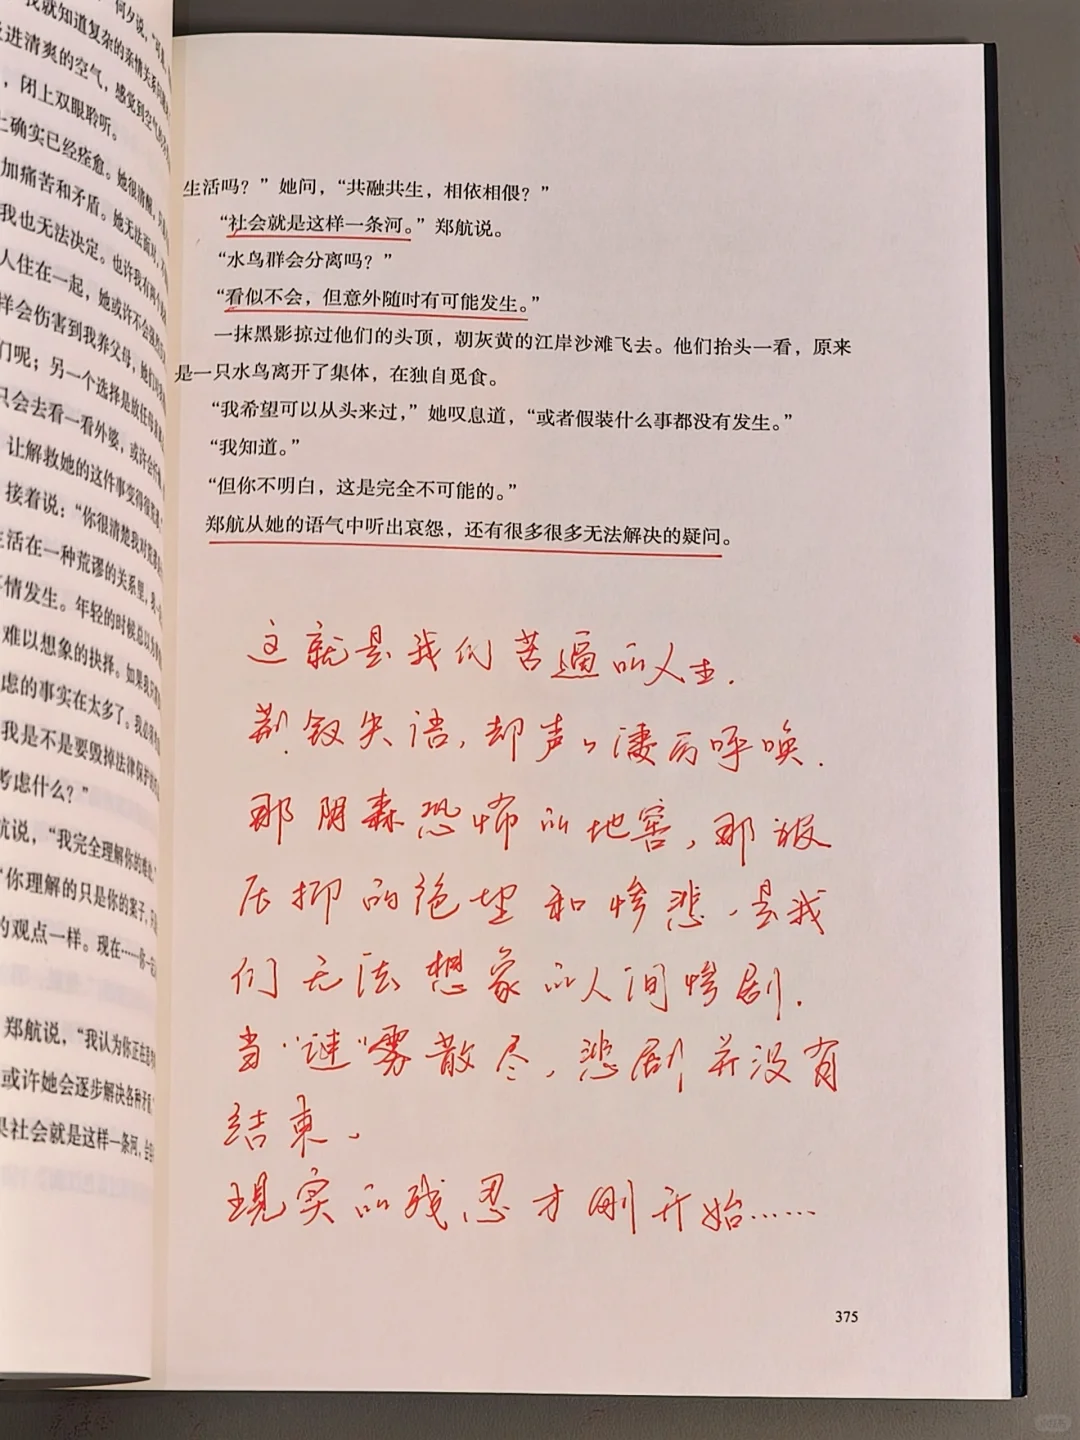 何夕说，“可是，
我就知道复杂的亲情关系
进清爽的空气，感觉到空气
，闭上双眼聆听。
上确实已经痊愈。她很清醒，
加痛苦和矛盾。她无法面对，
我也无法决定。也许我有两个
人住在一起，她或许不会
样会伤害到我养父母，她们
们呢；另一个选择是放任
只会去看一看外婆，或许会
让解救她的这件事变得很
接着说：“你很清楚我对
生活在一种荒谬的关系里，
情发生。年轻的时候总以为
难以想象的抉择。如果我
虑的事实在太多了。我必须
我是不是要毁掉法律保护
考虑什么？”
航说，“我完全理解你的
“你理解的只是你的案子，
的观点一样。现在……你一
郑航说，“我认为你正在
或许她会逐步解决各种矛盾
果社会就是这样一条河，
生活吗？”她问，“共融共生，相依相偎？”
“社会就是这样一条河。”郑航说。
“水鸟群会分离吗？”
“看似不会，但意外随时有可能发生。”
一抹黑影掠过他们的头顶，朝灰黄的江岸沙滩飞去。他们抬头一看，原来
是一只水鸟离开了集体，在独自觅食。
“我希望可以从头来过，”她叹息道，“或者假装什么事都没有发生。”
“我知道。”
“但你不明白，这是完全不可能的。”
郑航从她的语气中听出哀怨，还有很多很多无法解决的疑问。
这就是我们苦逼的人生.
荆钗失语，却声声凄厉呼唤.
那阴森恐怖的地窖，那被
压抑的绝望和惨悲，是我
们无法想象的人间惨剧.
当“谜”雾散尽，悲剧并没有
结束，
现实的残忍才刚开始……
375